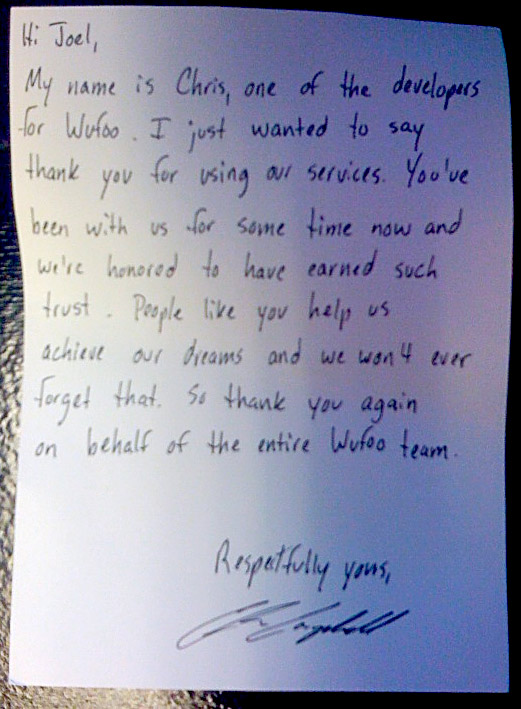 Hi Joel,
My name is Chris, one of the developers
for Wufoo. I just wanted to say
thank you for using our services. You've
been with us for some time now and
we're honored to have earned such
trust. People like you help us
achieve our dreams and we won't ever
forget that. So thank you again
on behalf of the entire Wufoo team.
Respectfully yours,
Chris Campbell